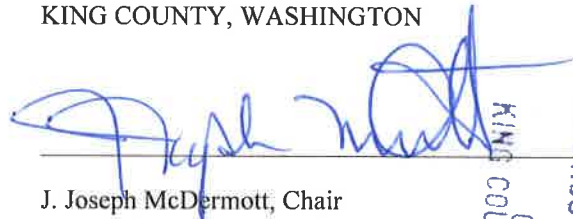 KING COUNTY, WASHINGTON
J. Joseph McDermott, Chair
KING COU